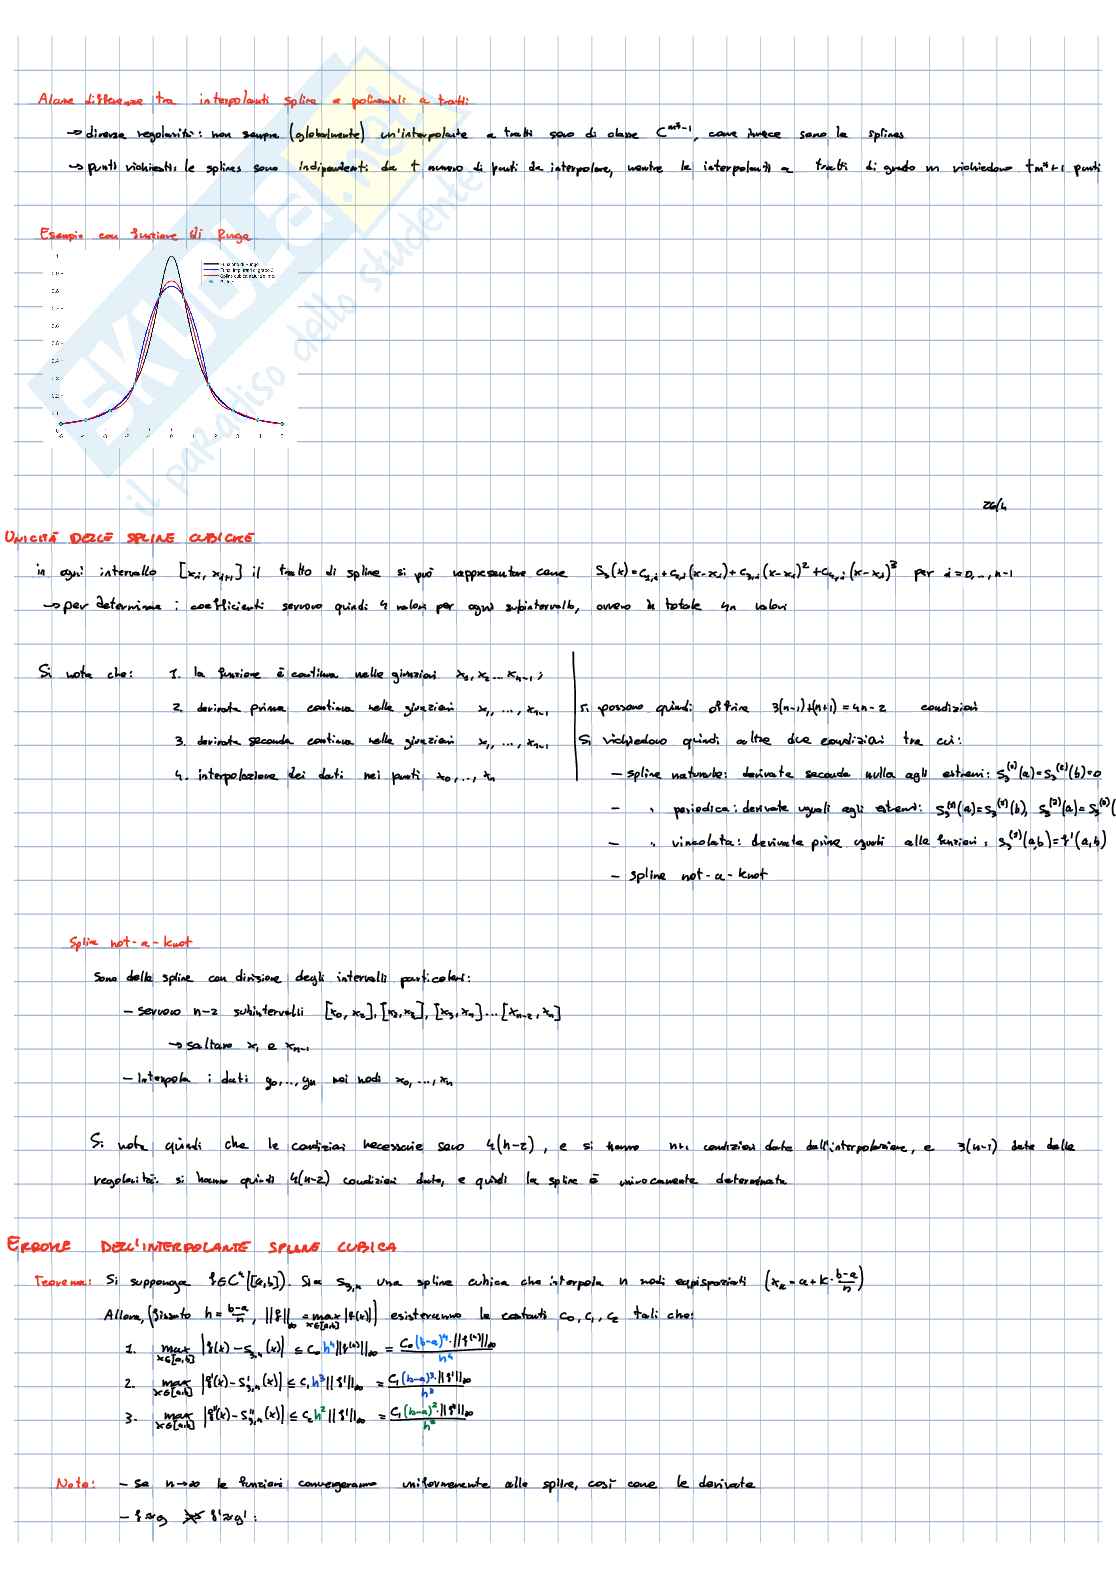 Alcune differenze tra interpolanti spline e polinomiali a tratti:
→ diverse regolarità: non sempre (globalmente) un'interpolante a tratti sono di classe C^(m-1), come invece sono le splines
→ punti richiesti: le splines sono indipendenti da # numero di punti da interpolare, mentre le interpolanti a tratti di grado m richiedono m+1 punti
Esempio con funzione di Runge
26/4
UNICITÀ DELLE SPLINE CUBICHE
in ogni intervallo [xi, xi+1] il tratto di spline si può rappresentare come S3(x)=c1,i+c2,i(x-xi)+c3,i(x-xi)²+c4,i(x-xi)³ per i=0,..,n-1
→ per determinare i coefficienti servono quindi 4 valori per ogni subintervallo, ovvero in totale 4n valori
Si nota che: 1. la funzione è continua nelle giunzioni x1, x2 ... xn-1;
2. derivata prima continua nelle giunzioni x1, ..., xn-1
si possono quindi offrire 3(n-1)+(n+1)=4n-2 condizioni
3. derivata seconda continua nelle giunzioni x1, ..., xn-1
Si richiedono quindi altre due condizioni tra cui:
4. interpolazione dei dati nei punti x0, .., xn
- spline naturale: derivate seconda nulla agli estremi: S3^(2)(a)=S3^(2)(b)=0
- " periodica: derivate uguali agli estremi: S3^(1)(a)=S3^(1)(b), S3^(2)(a)=S3^(2)(
- " vincolata: derivate prime uguali alle funzioni: S3^(1)(a,b)=f'(a,b)
- spline not-a-knot
Spline not-a-knot
Sono delle spline con divisione degli intervalli particolari:
- servono n-2 subintervalli [x0, x2], [x2, x3], [x3, x4] ... [xn-2, xn]
→ saltano x1 e xn-1
- Interpola i dati y0, .., yn nei nodi x0, ..., xn
Si nota quindi che le condizioni necessarie sono 4(n-2), e si hanno n+1 condizioni date dall'interpolazione, e 3(n-1) date dalle
regolarità: si hanno quindi 4(n-2) condizioni date, e quindi la spline è univocamente determinata
ERRORE DELL'INTERPOLANTE SPLINE CUBICA
Teorema: Si supponga f∈C⁴([a,b]). Sia S3,n una spline cubica che interpola n nodi equispaziati (xk = a+k·(b-a)/n)
Allora, (fissato h=(b-a)/n, ||f||∞ = max x∈[a,b] |f(x)|) esisteranno le costanti c0, c1, c2 tali che:
1. max x∈[a,b] |f(x)-S3,n(x)| ≤ c0 h⁴ ||f^(4)||∞ = c0 (b-a)⁴·||f^(4)||∞ / n⁴
2. max x∈[a,b] |f'(x)-S'3,n(x)| ≤ c1 h³ ||f'||∞ = c1 (b-a)³·||f'||∞ / n³
3. max x∈[a,b] |f''(x)-S''3,n(x)| ≤ c2 h² ||f'||∞ = c1 (b-a)²·||f''||∞ / n²
Nota: - se n→∞ le funzioni convergeranno uniformemente alle spline, così come le derivate
- f≈g ⇏ f'≈g':
SKUOLA.net
il paradiso dello studente